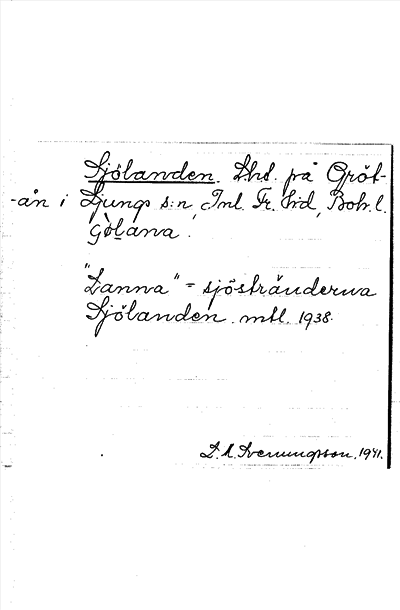 Sjölanden. Lhd. på Gröt-
-ån i Ljungs s:n, Inl. Fr. hd, Boh. l.
Göl̲ana.
"Lanna" = sjöstränderna
Sjölanden. mtl. 1938.
D. A. Svenungsson, 1941.